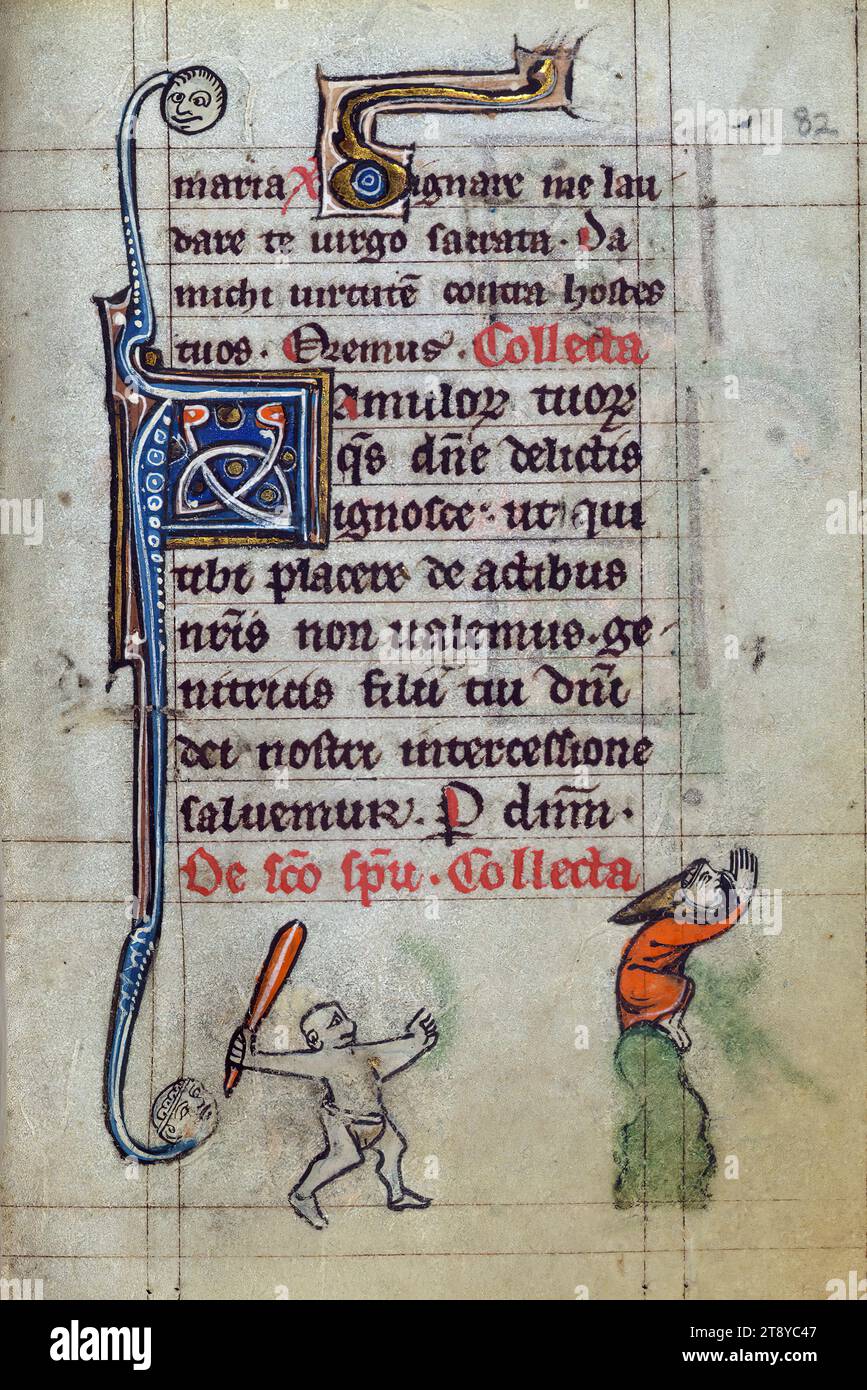 82
maria Dignare me lau
dare te uirgo sacrata. Da
michi uirtutē contra hostes
tuos. Oremus. Collecta
Famuloꝝ tuoꝝ
qs̄ dn̄e delictis
ignosce. ut qui
tibi placere de actibus
nr̄is non ualemus. ge
nitricis filii tui dn̄i
dei nostri intercessione
saluemur. P dn̄m.
De sc̄o sp̄u. Collecta
alamy
Image ID: 2T8YC47
www.alamy.com